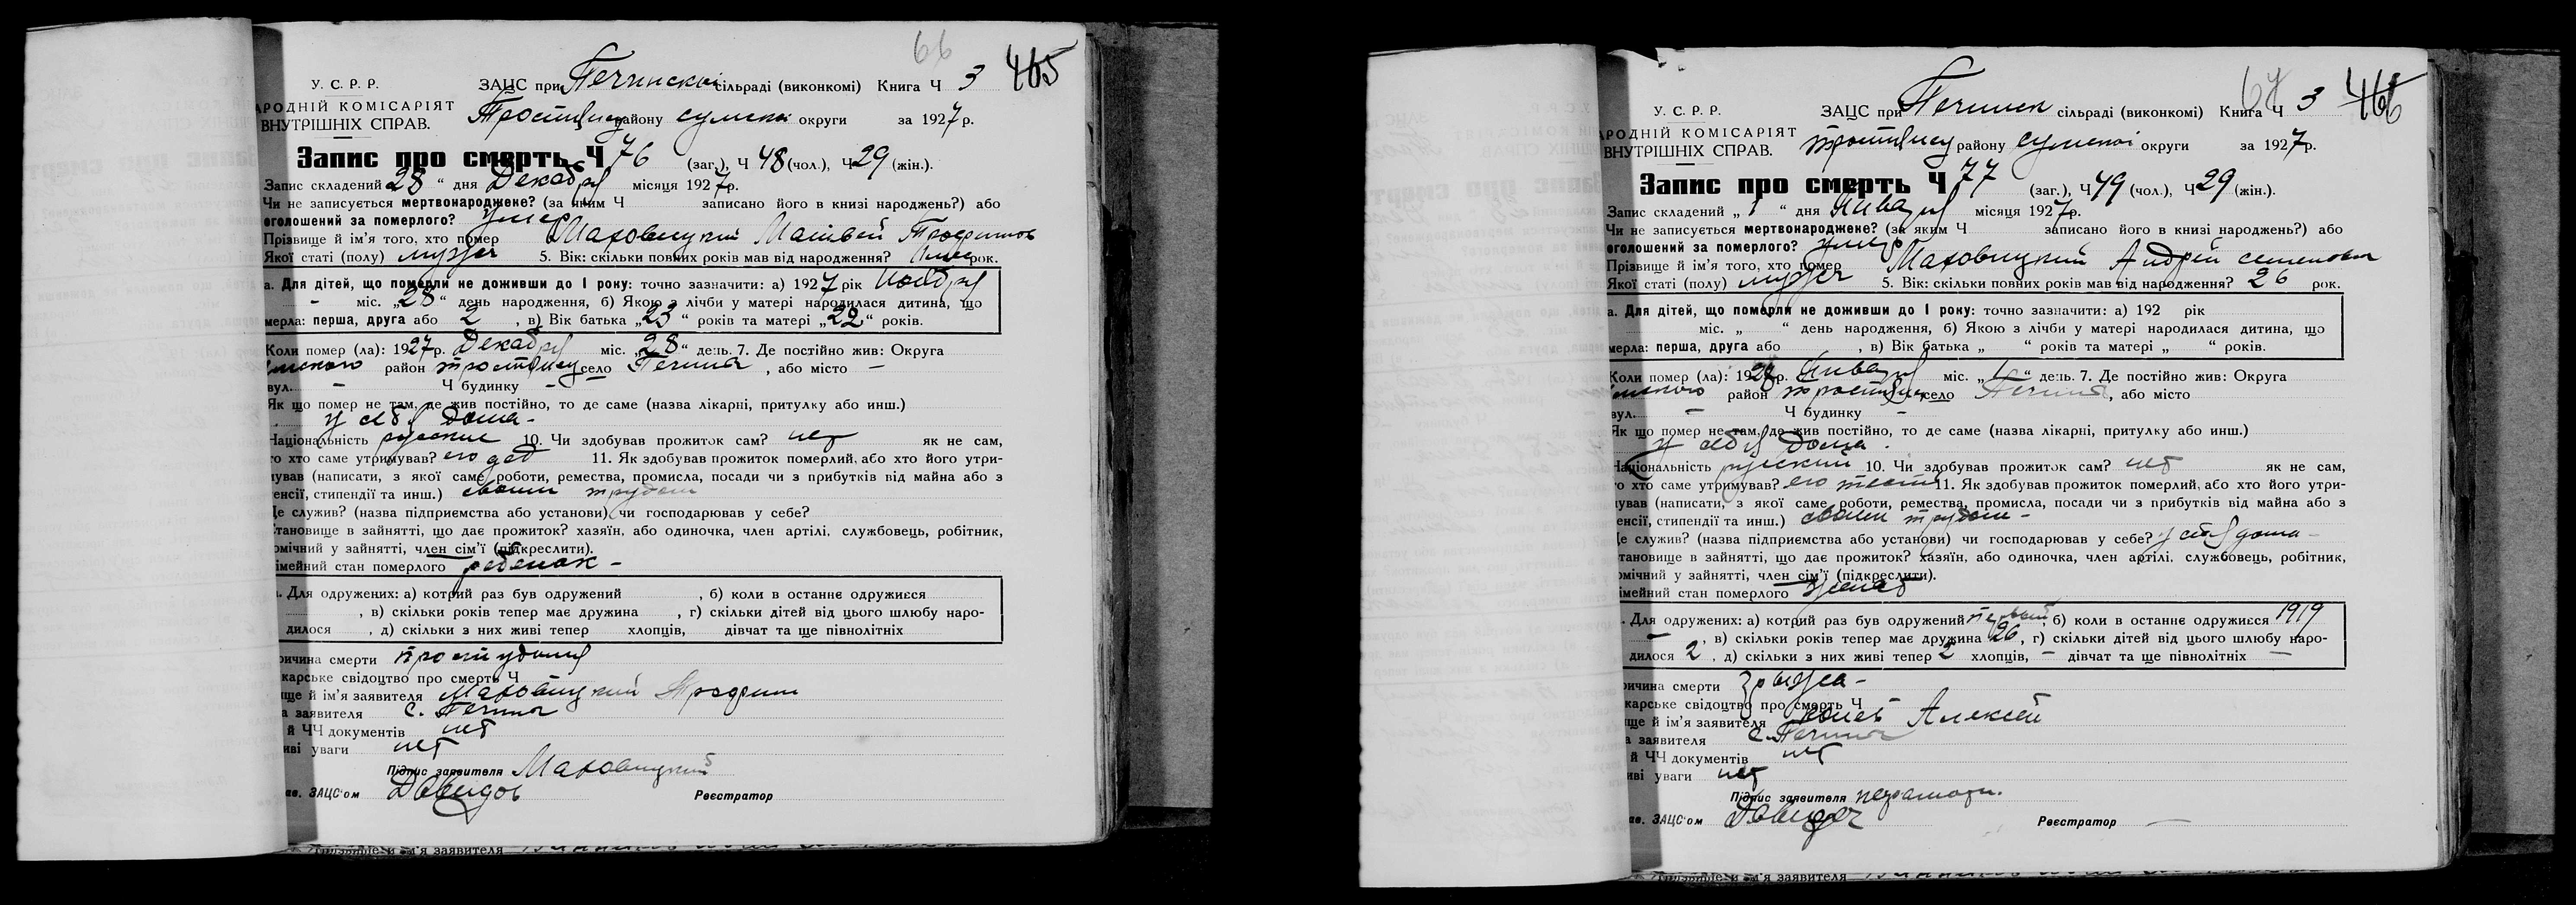 66
465
У. С. Р. Р. ЗАЦС при Печинской сільраді (виконкомі) Книга Ч 3
АРОДНІЙ КОМІСАРІЯТ
ВНУТРІШНІХ СПРАВ.
району сумской округи за 1927 р.
Запис про смерть Ч 76 (заг.), Ч 48 (чол.), Ч 29 (жін.).
Запис складений 28 “ дня Декабря місяця 1927 р.
Чи не записується мертвонароджене? (за яким Ч записано його в книзі народжень?) або
оголошений за померлого? умер
Прізвище й ім’я того, хто помер Маховицкий Матвей Трофимов
Якої статі (полу) 5. Вік: скільки повних років мав від народження? рок.
а. Для дітей, що померли не доживши до 1 року: точно зазначити: а) 1927 рік Ноября
- міс. „28“ день народження, б) Якою з лічби у матері народилася дитина, що
мерла: перша, друга або 2 , в) Вік батька „23“ років та матері „22“ років.
Коли помер (ла): 1927 р. Декабря міс. „28“ день. 7. Де постійно жив: Округа
район село Печина , або місто —
вул. - Ч будинку -
Як що помер не там, де жив постійно, то де саме (назва лікарні, притулку або инш.)
у себя дома -
Національність русские 10. Чи здобував прожиток сам? нет як не сам,
то хто саме утримував? его дед 11. Як здобував прожиток померлий, або хто його утри-
мував (написати, з якої саме роботи, ремества, промисла, посади чи з прибутків від майна або з
енсії, стипендії та инш.) своим трудом
Де служив? (назва підприємства або установи) чи господарював у себе?
Становище в зайнятті, що дає прожиток? хазяїн, або одиночка, член артілі, службовець, робітник,
омічний у зайнятті, член сім’ї (підкреслити).
імейний стан померлого ребенок -
. Для одружених: а) котрий раз був одружений , б) коли в останнє одружився
, в) скільки років тепер має дружина , г) скільки дітей від цього шлюбу наро-
дилося , д) скільки з них живі тепер хлопців, дівчат та ще півнолітніх
ричина смерти простудился
карське свідоцтво про смерть Ч
ище й ім’я заявителя Маховицкий Трофим
а заявителя с. Печина
й ЧЧ документів нет
иві уваги нет
Підпис заявителя Маховицкий
ав. ЗАЦС’ом Давидов Реєстратор
67
466
У. С. Р. Р. ЗАЦС при Печинск сільраді (виконкомі) Книга Ч 3
АРОДНІЙ КОМІСАРІЯТ
ВНУТРІШНІХ СПРАВ.
району сумской округи за 1927 р.
Запис про смерть Ч 77 (заг.), Ч 49 (чол.), Ч 29 (жін.).
Запис складений „ 1 “ дня Января місяця 1927 р.
Чи не записується мертвонароджене? (за яким Ч записано його в книзі народжень?) або
оголошений за померлого? умер
Прізвище й ім’я того, хто помер Маховицкий Андрей семенович
Якої статі (полу) 5. Вік: скільки повних років мав від народження? 26 рок.
а. Для дітей, що померли не доживши до 1 року: точно зазначити: а) 192 рік
міс. „ “ день народження, б) Якою з лічби у матері народилася дитина, що
мерла: перша, друга або , в) Вік батька „ “ років та матері „ “ років.
Коли помер (ла): 1928 р. Января міс. „ 1 “ день. 7. Де постійно жив: Округа
район село Печина , або місто
вул. - Ч будинку -
Як що помер не там, де жив постійно, то де саме (назва лікарні, притулку або инш.)
у себя дома -
Національність русский 10. Чи здобував прожиток сам? нет як не сам,
то хто саме утримував? его тесть 11. Як здобував прожиток померлий, або хто його утри-
мував (написати, з якої саме роботи, ремества, промисла, посади чи з прибутків від майна або з
енсії, стипендії та инш.) своим трудом -
Де служив? (назва підприємства або установи) чи господарював у себе? у себя дома -
Становище в зайнятті, що дає прожиток? хазяїн, або одиночка, член артілі, службовець, робітник,
омічний у зайнятті, член сім’ї (підкреслити).
імейний стан померлого женат
. Для одружених: а) котрий раз був одружений первый , б) коли в останнє одружився 1919
— , в) скільки років тепер має дружина 26 , г) скільки дітей від цього шлюбу наро-
дилося 2 , д) скільки з них живі тепер 2 хлопців, — дівчат та ще півнолітніх —
ричина смерти
карське свідоцтво про смерть Ч
ище й ім’я заявителя Алексей
а заявителя с. Печина
й ЧЧ документів нет
иві уваги нет
Підпис заявителя неграмотн.
ав. ЗАЦС’ом Давидов Реєстратор —